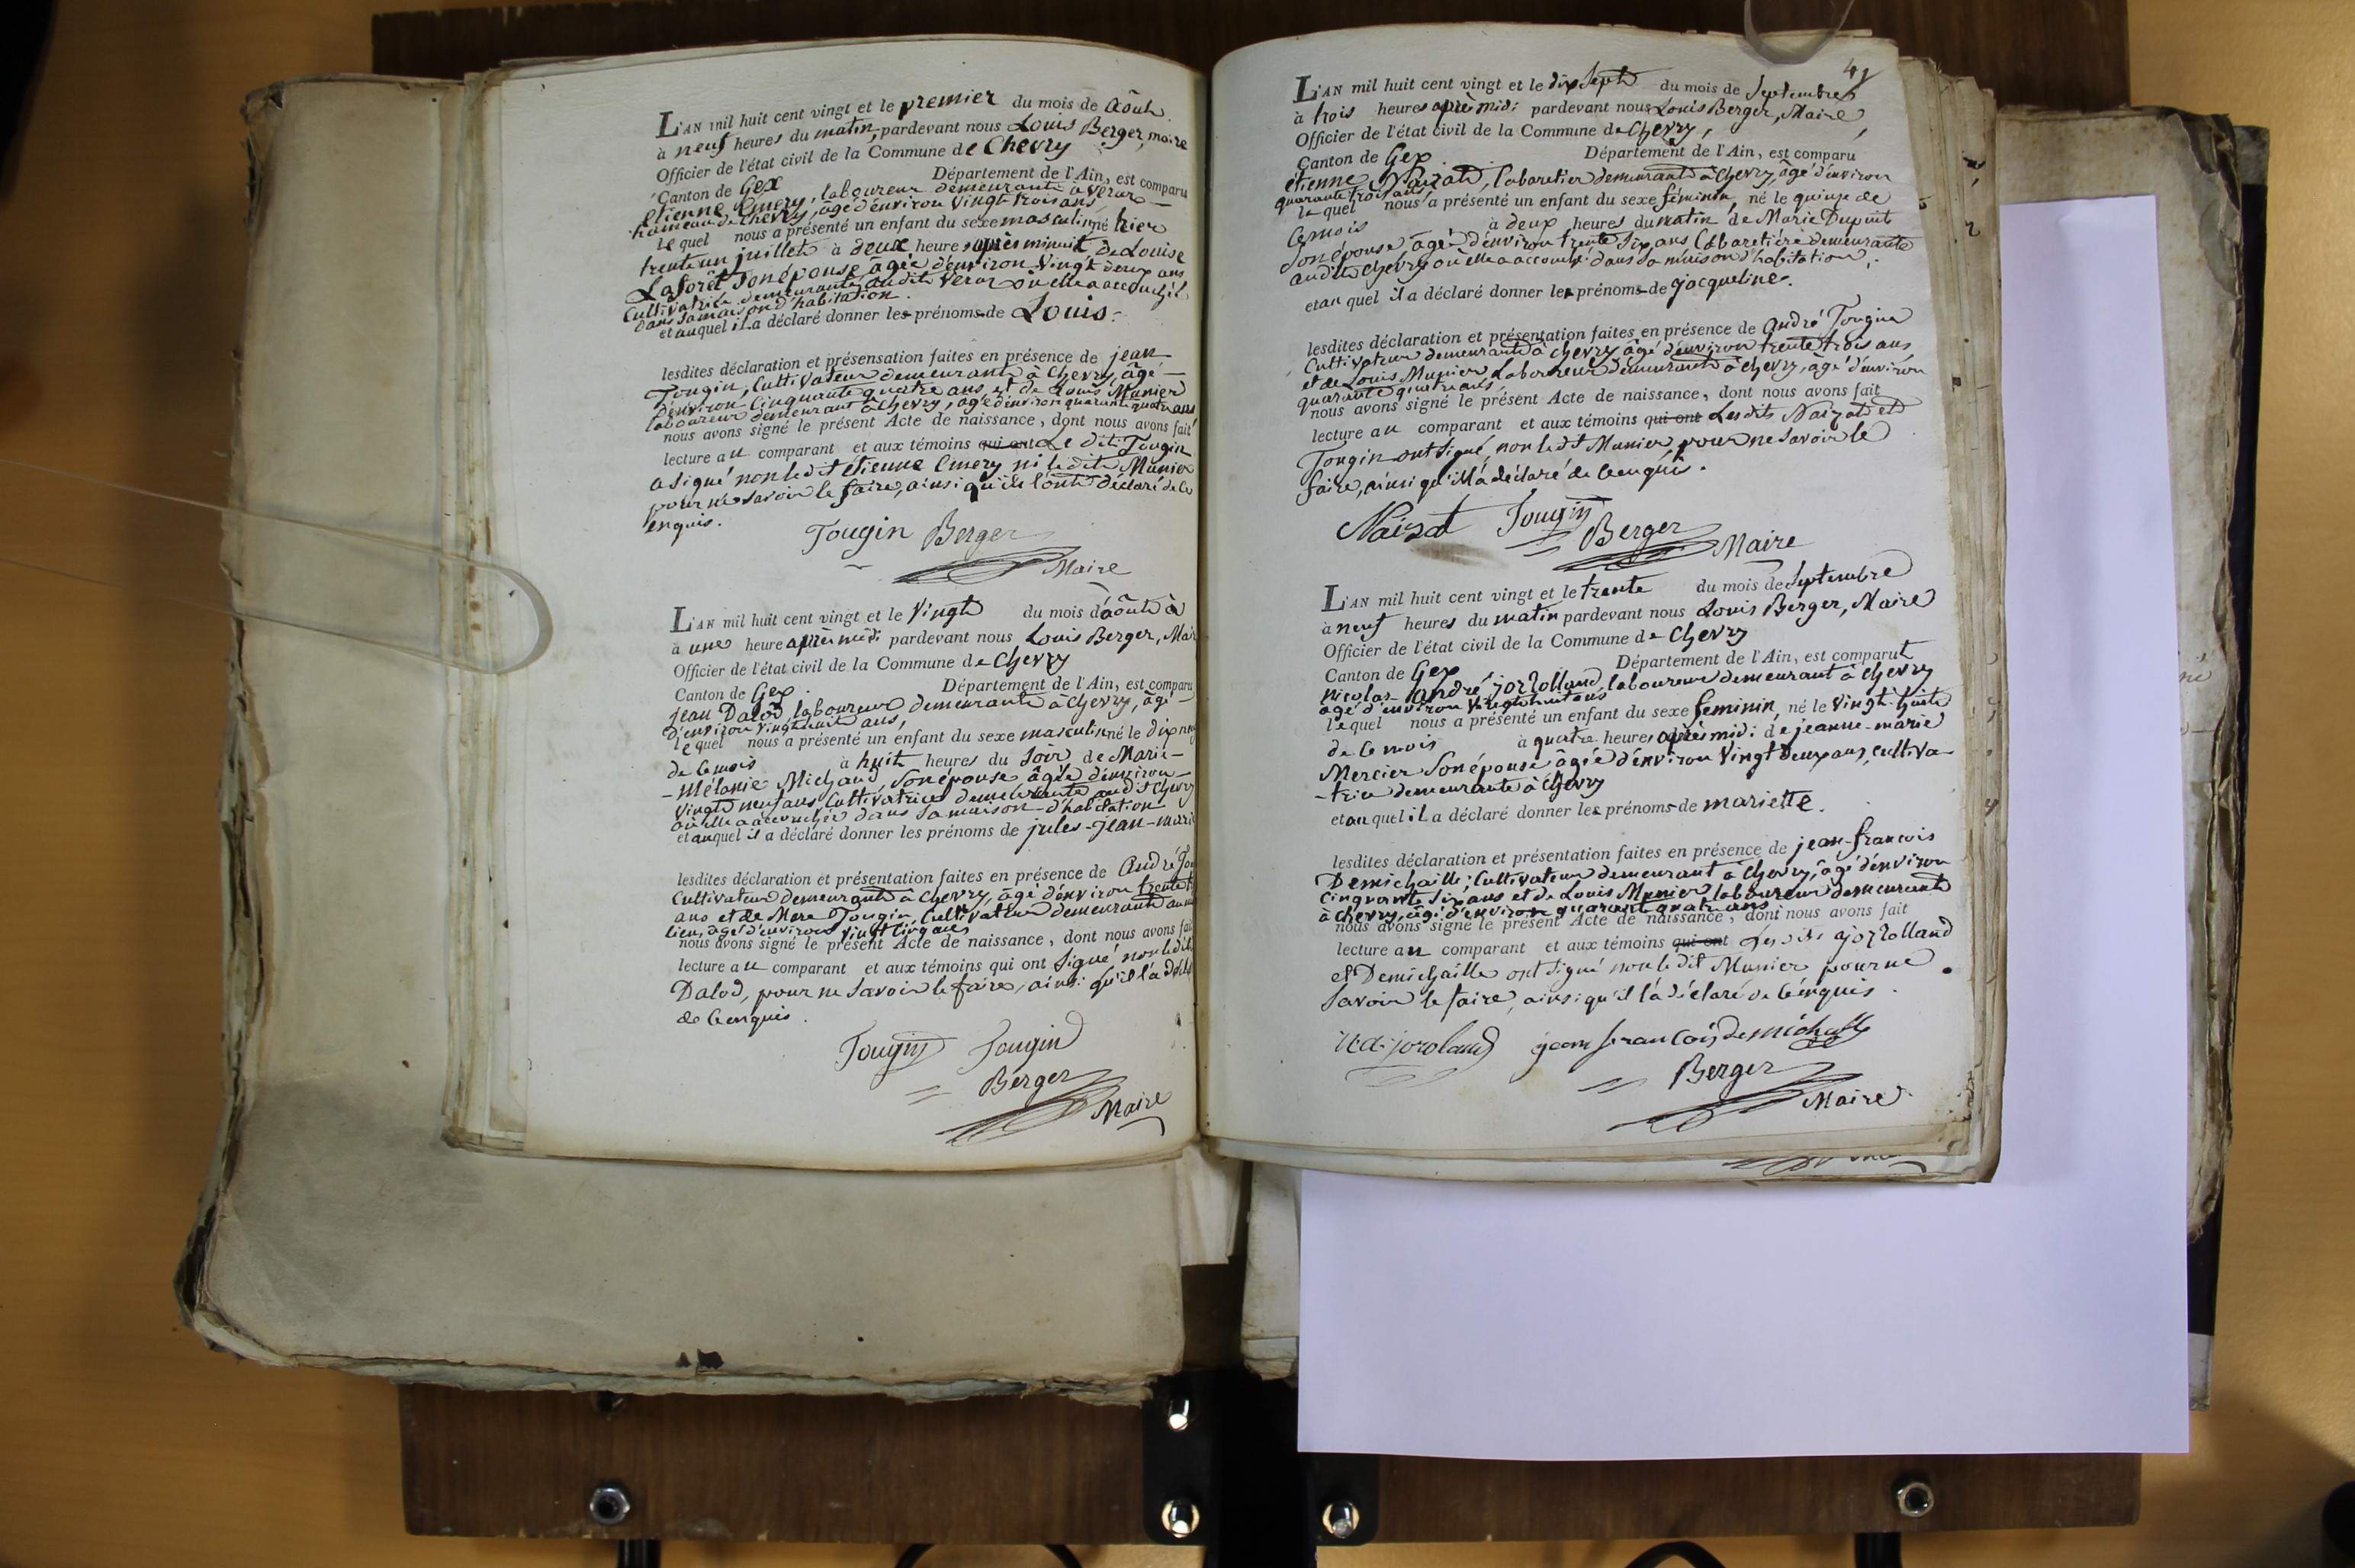 L'AN mil huit cent vingt et le premier du mois de Aôut
à neuf heures du matin, pardevant nous Louis Berger, maire
Officier de l'état civil de la Commune de Chevry
Canton de Gex Département de l'Ain, est comparu
etienne Emery, laboureur demeurant à Veraz
hameau de Chevry, âgé d'environ Vingt trois ans
lequel nous a présenté un enfant du sexe masculin né hier
trente un juillet à deux heures après minuit de Louise
Laforêt Son épouse âgée d'environ Vingt deux ans
Cultivatrice demeurante audit Veraz où elle a accouché
dans sa maison d'habitation.
et auquel il a déclaré donner les prénoms de Louis.
lesdites déclaration et présensation faites en présence de jean
Tougin, Cultivateur demeurant à Chevry, âgé
d'environ Cinquante quatre ans, et de Louis Munier
laboureur demeurant à Chevry, âgé d'environ quarante quatre ans
nous avons signé le présent Acte de naissance, dont nous avons fait
lecture au comparant et aux témoins qui ont Le dit Tougin
a signé non ledit étienne Emery ni le dit Munier
pour ne savoir le faire, ainsi qu'ils l'ont déclaré de ce
enquis.
Tougin Berger
Maire
L'AN mil huit cent vingt et le Vingt du mois d'aôut à
à une heure après midi pardevant nous Louis Berger, Mai
Officier de l'état civil de la Commune de Chevry
Canton de Gex. Département de l'Ain, est comparu
jean Dalod, laboureur demeurant à Chevry, âgé
d'environ Vingt huit ans,
lequel nous a présenté un enfant du sexe masculin né le dix neuf
de ce mois à huit heures du Soir de Marie-
-Mélanie Michaud Son épouse âgée d'environ
Vingt neuf ans Cultivatrice demeurante audit Chevry
où elle a accouchée dans sa maison d'habitation
et auquel il a déclaré donner les prénoms de jules-jean-marie
lesdites déclaration et présentation faites en présence de André Tou
Cultivateur demeurant à Chevry, âgé d'environ trente t
ans et de Marc Tougin, Cultivateur demeurant au
lieu, âgé d'environ Vingt Cinq ans
nous avons signé le présent Acte de naissance, dont nous avons fait
lecture au comparant et aux témoins qui ont Signé, non ledit
Dalod, pour ne Savoir le faire, ainsi qu'il l'a décl
de ce enquis.
Tougin Tougin
Berger
Maire
41
L'AN mil huit cent vingt et le dix Sept du mois de Septembre
à trois heures après midi pardevant nous Louis Berger, Maire
Officier de l'état civil de la Commune de Chevry,
Canton de Gex Département de l'Ain, est comparu
étienne Naizot, Cabaretier demeurant à Chevry, âgé d'environ
quarante trois ans,
lequel nous a présenté un enfant du sexe féminin, né le quinze de
ce mois à deux heures du matin de Marie Dupuit
Son épouse, âgée d'environ trente Six ans Cabaretière demeurante
audit Chevry où elle a accouché dans sa maison d'habitation,
et au quel il a déclaré donner les prénoms de jacqueline.
lesdites déclaration et présentation faites en présence de André Tougin
Cultivateur demeurant à Chevry âgé d'environ trente trois ans
et de Louis Munier Laboureur demeurant à Chevry, âgé d'environ
quarante quatre ans
nous avons signé le présent Acte de naissance, dont nous avons fait
lecture au comparant et aux témoins qui ont Lesdits Naizot et
Tougin ont signé, non le dit Munier, pour ne Savoir le
faire, ainsi qu'il l'a déclaré de ce enquis.
Naizot Tougin
Berger Maire
L'AN mil huit cent vingt et le trente du mois de Septembre
à neuf heures du matin pardevant nous Louis Berger, Maire
Officier de l'état civil de la Commune de Chevry
Canton de Gex Département de l'Ain, est comparut
Nicolas-André jozrolland laboureur demeurant à Chevry
âgé d'environ Vingt huit ans
lequel nous a présenté un enfant du sexe feminin, né le Vingt-huit
de ce mois à quatre heures après midi de jeanne-marie
Mercier Son épouse âgée d'environ Vingt Deux ans, cultiva-
-trice demeurante à Chevry
et au quel il a déclaré donner les prénoms de mariette.
lesdites déclaration et présentation faites en présence de jean-francois
Demichaille, Cultivateur demeurant à Chevry, âgé d'environ
Cinquante Six ans et de Louis Munier laboureur demeurant
à Chevry, âgé d'environ quarante quatre ans
nous avons signé le présent Acte de naissance, dont nous avons fait
lecture au comparant et aux témoins qui ont Lesdits jozrolland
et Demichaille ont signé non le dit Munier pour ne
Savoir le faire, ainsi qu'il l'a déclaré de ce enquis.
jozoland jean francois Demichalle
Berger
Maire